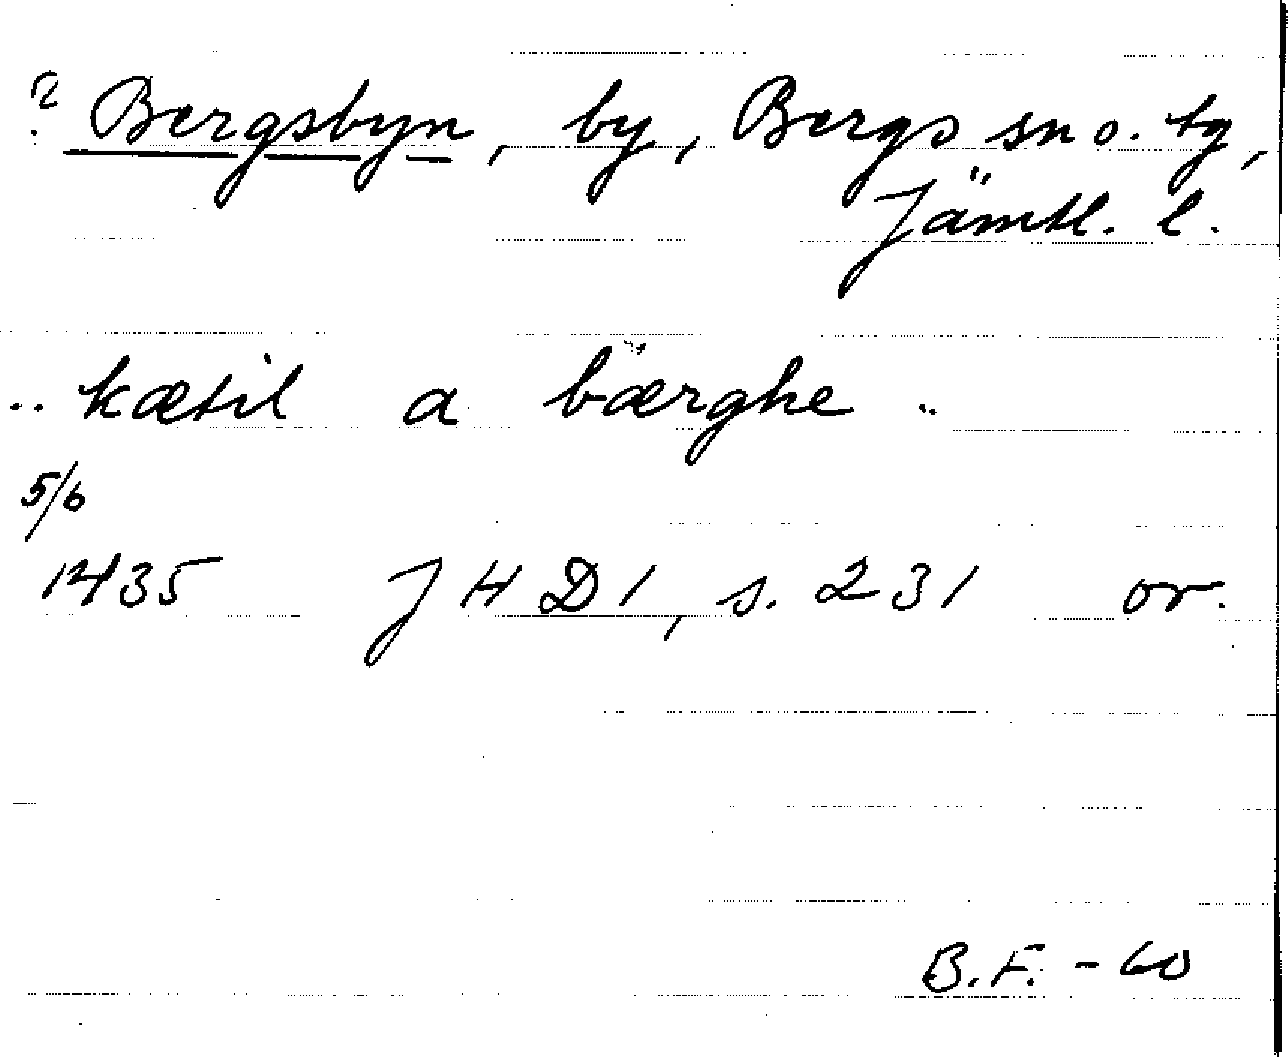 ? Bergsbyn, by, Bergs sn o. tg,
Jämtl. l.
.. kætil a bærghe ..
5/6
1435 JHD1, s. 231 or.
B.F. - 60